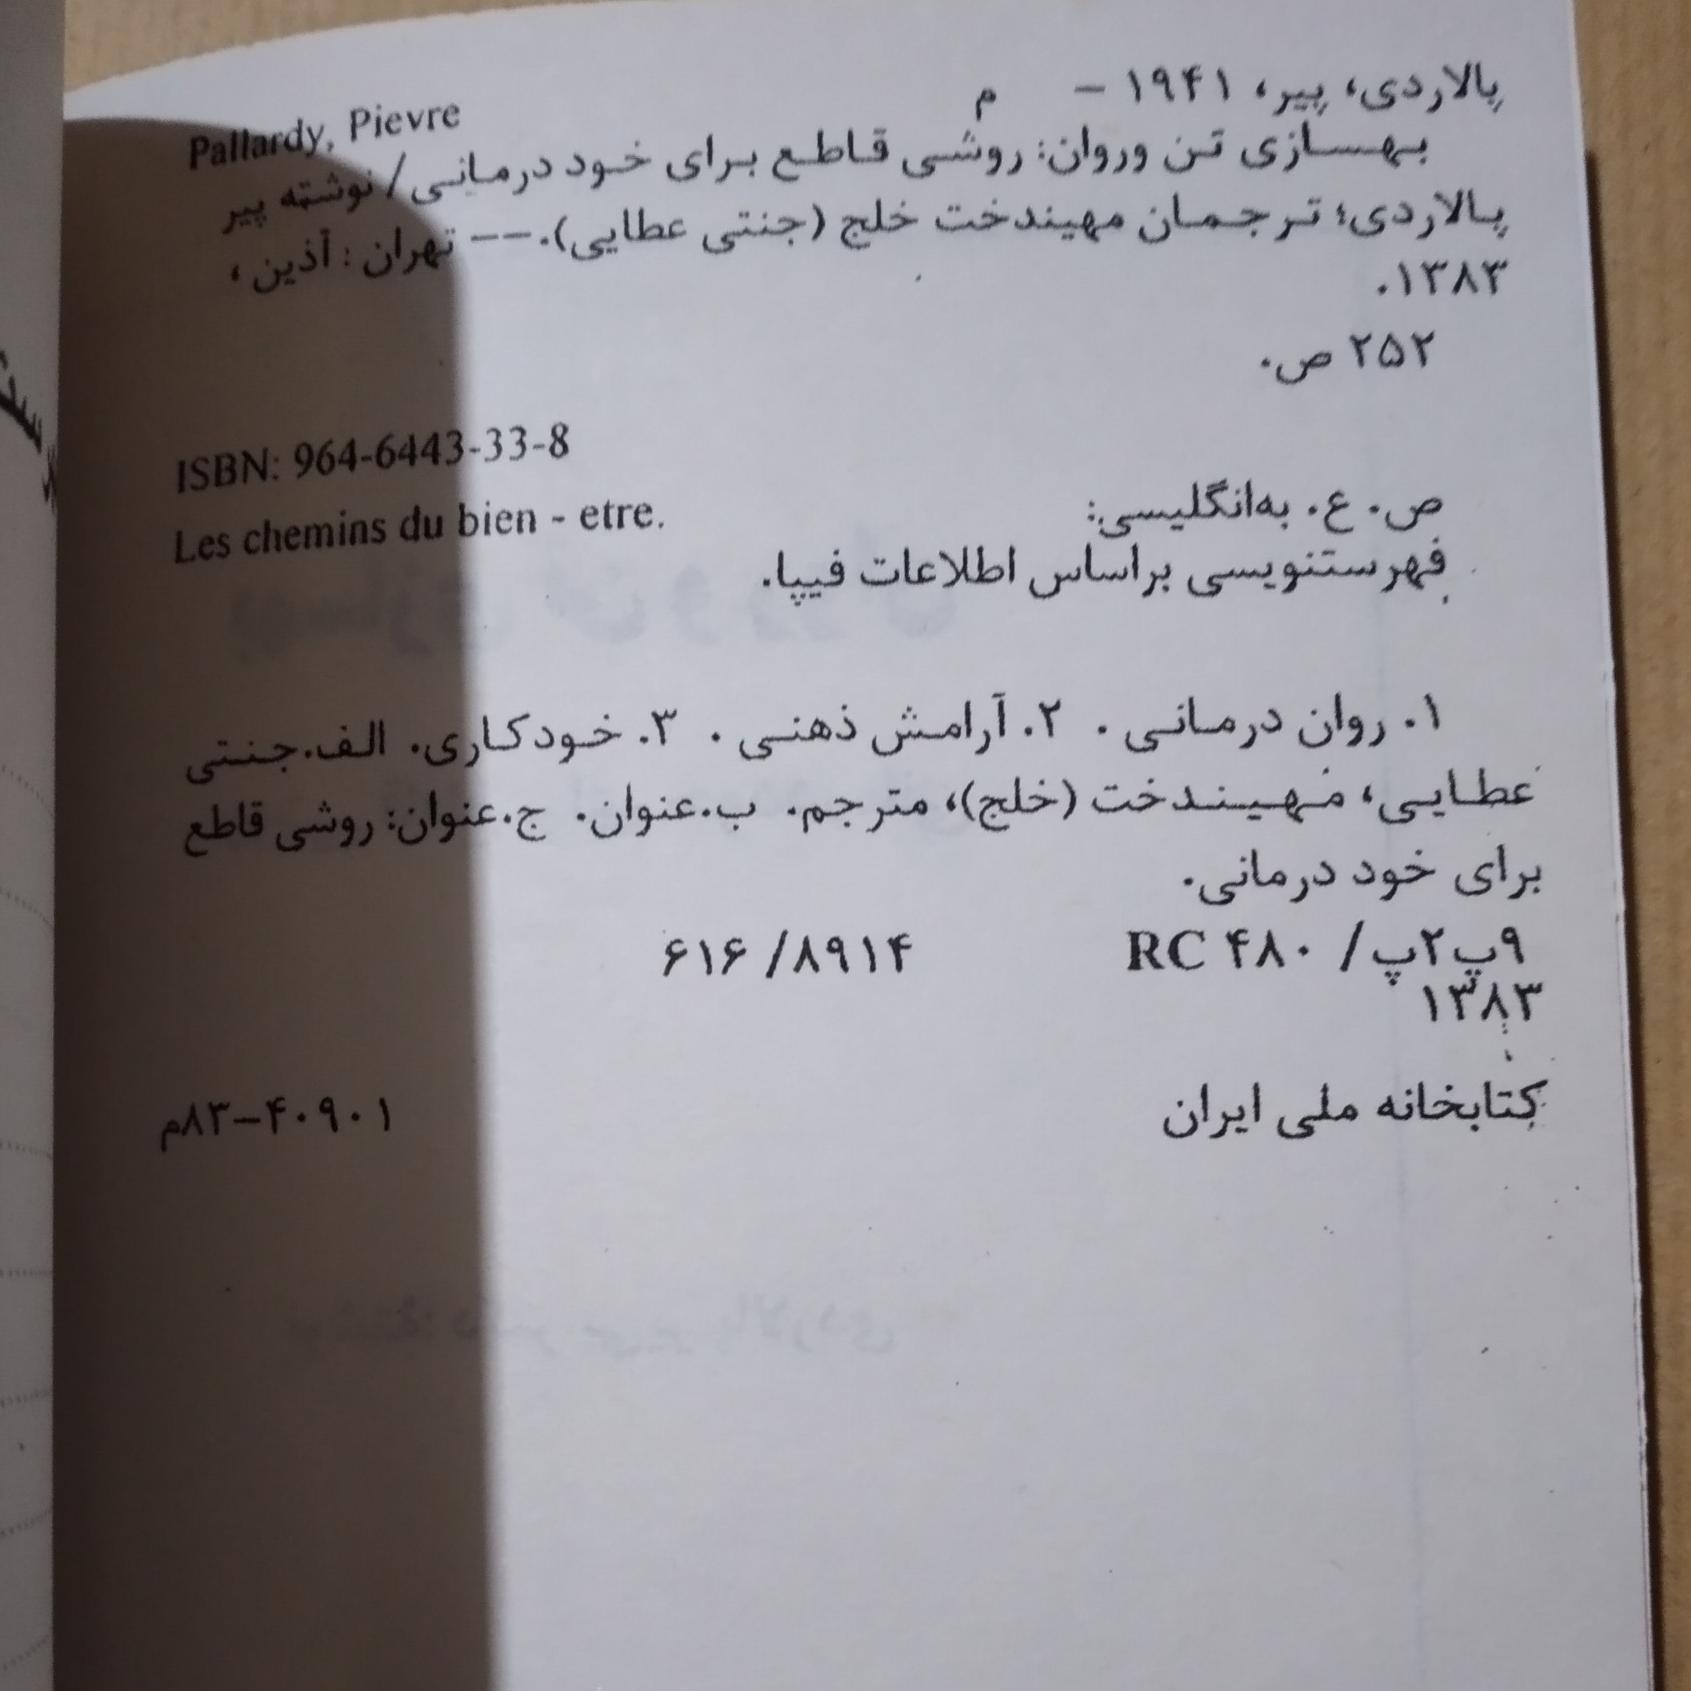 پالاردی، پیر، ۱۹۴۱ - م
Pallardy, Pievre
بهسازی تن وروان: روشی قاطع برای خود درمانی/ نوشته پیر
پالاردی؛ ترجمان مهیندخت خلج (جنتی عطایی).-- تهران : آذین ،
۱۳۸۳.
۲۵۲ ص.
ISBN: 964-6443-33-8
ص. ع. به‌انگلیسی:
Les chemins du bien - etre.
فهرستنویسی براساس اطلاعات فیپا.
۱. روان درمانی . ۲. آرامش ذهنی . ۳. خودکاری. الف.جنتی
عطایی، مهیندخت (خلج)، مترجم. ب.عنوان. ج.عنوان: روشی قاطع
برای خود درمانی.
۹پ۲پ/ ۴۸۰ RC ۶۱۶ /۸۹۱۴
۱۳۸۳
کتابخانه ملی ایران ۸۳-۴۰۹۰۱م